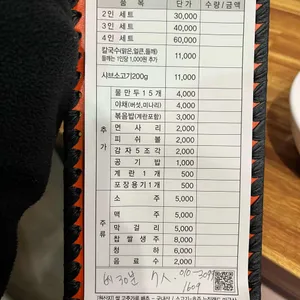 품 목 단 가 수량/금액
2인 세트 30,000
3인 세트 40,000
4인 세트 60,000
칼국수(맑은,얼큰,들깨)
들깨는 1인당 1,000원 추가 11,000
샤브소고기200g 11,000
추가
물만두15개 4,000
야채(버섯,미나리) 4,000
볶음밥(계란포함) 3,000
면 사 리 2,000
피 쉬 볼 2,000
감자5조각 2,000
공 기 밥 1,000
계 란 1 개 500
포장용기1개 500
주류
소 주 5,000
맥 주 5,000
막 걸 리 5,000
찹 쌀 생 주 8,000
청 하 6,000
음 료 수 2,000
1609